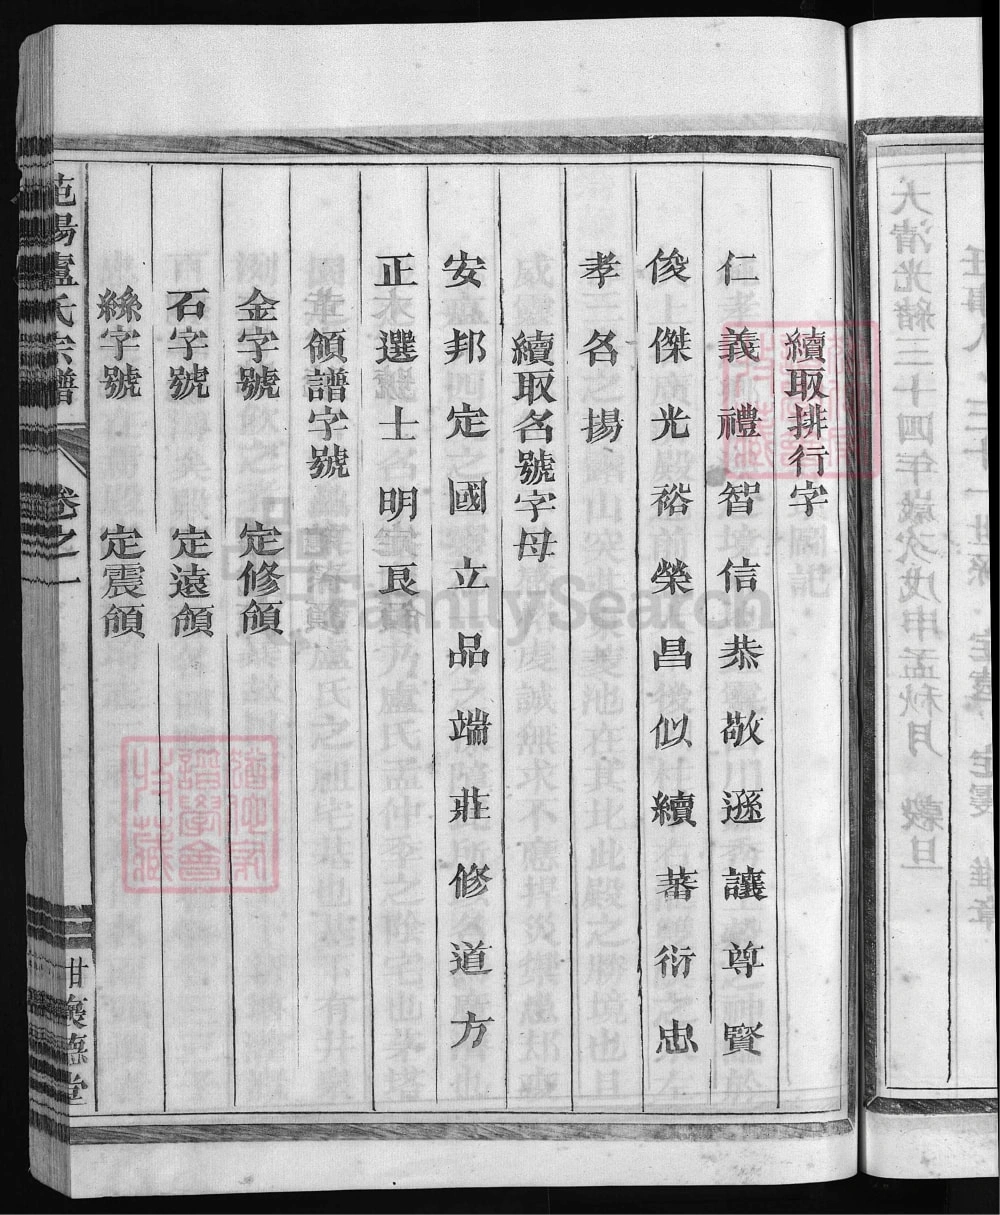 續取排行字
仁義禮智信恭敬遜讓尊賢
俊傑光裕榮昌似續蕃衍忠
孝名揚
續取名號字母
安邦定國立品端莊修道方
正選士明良
領譜字號
金字號 定修領
石字號 定遠領
絲字號 定震領
范陽盧氏宗譜 卷之一 堂
FamilySearch